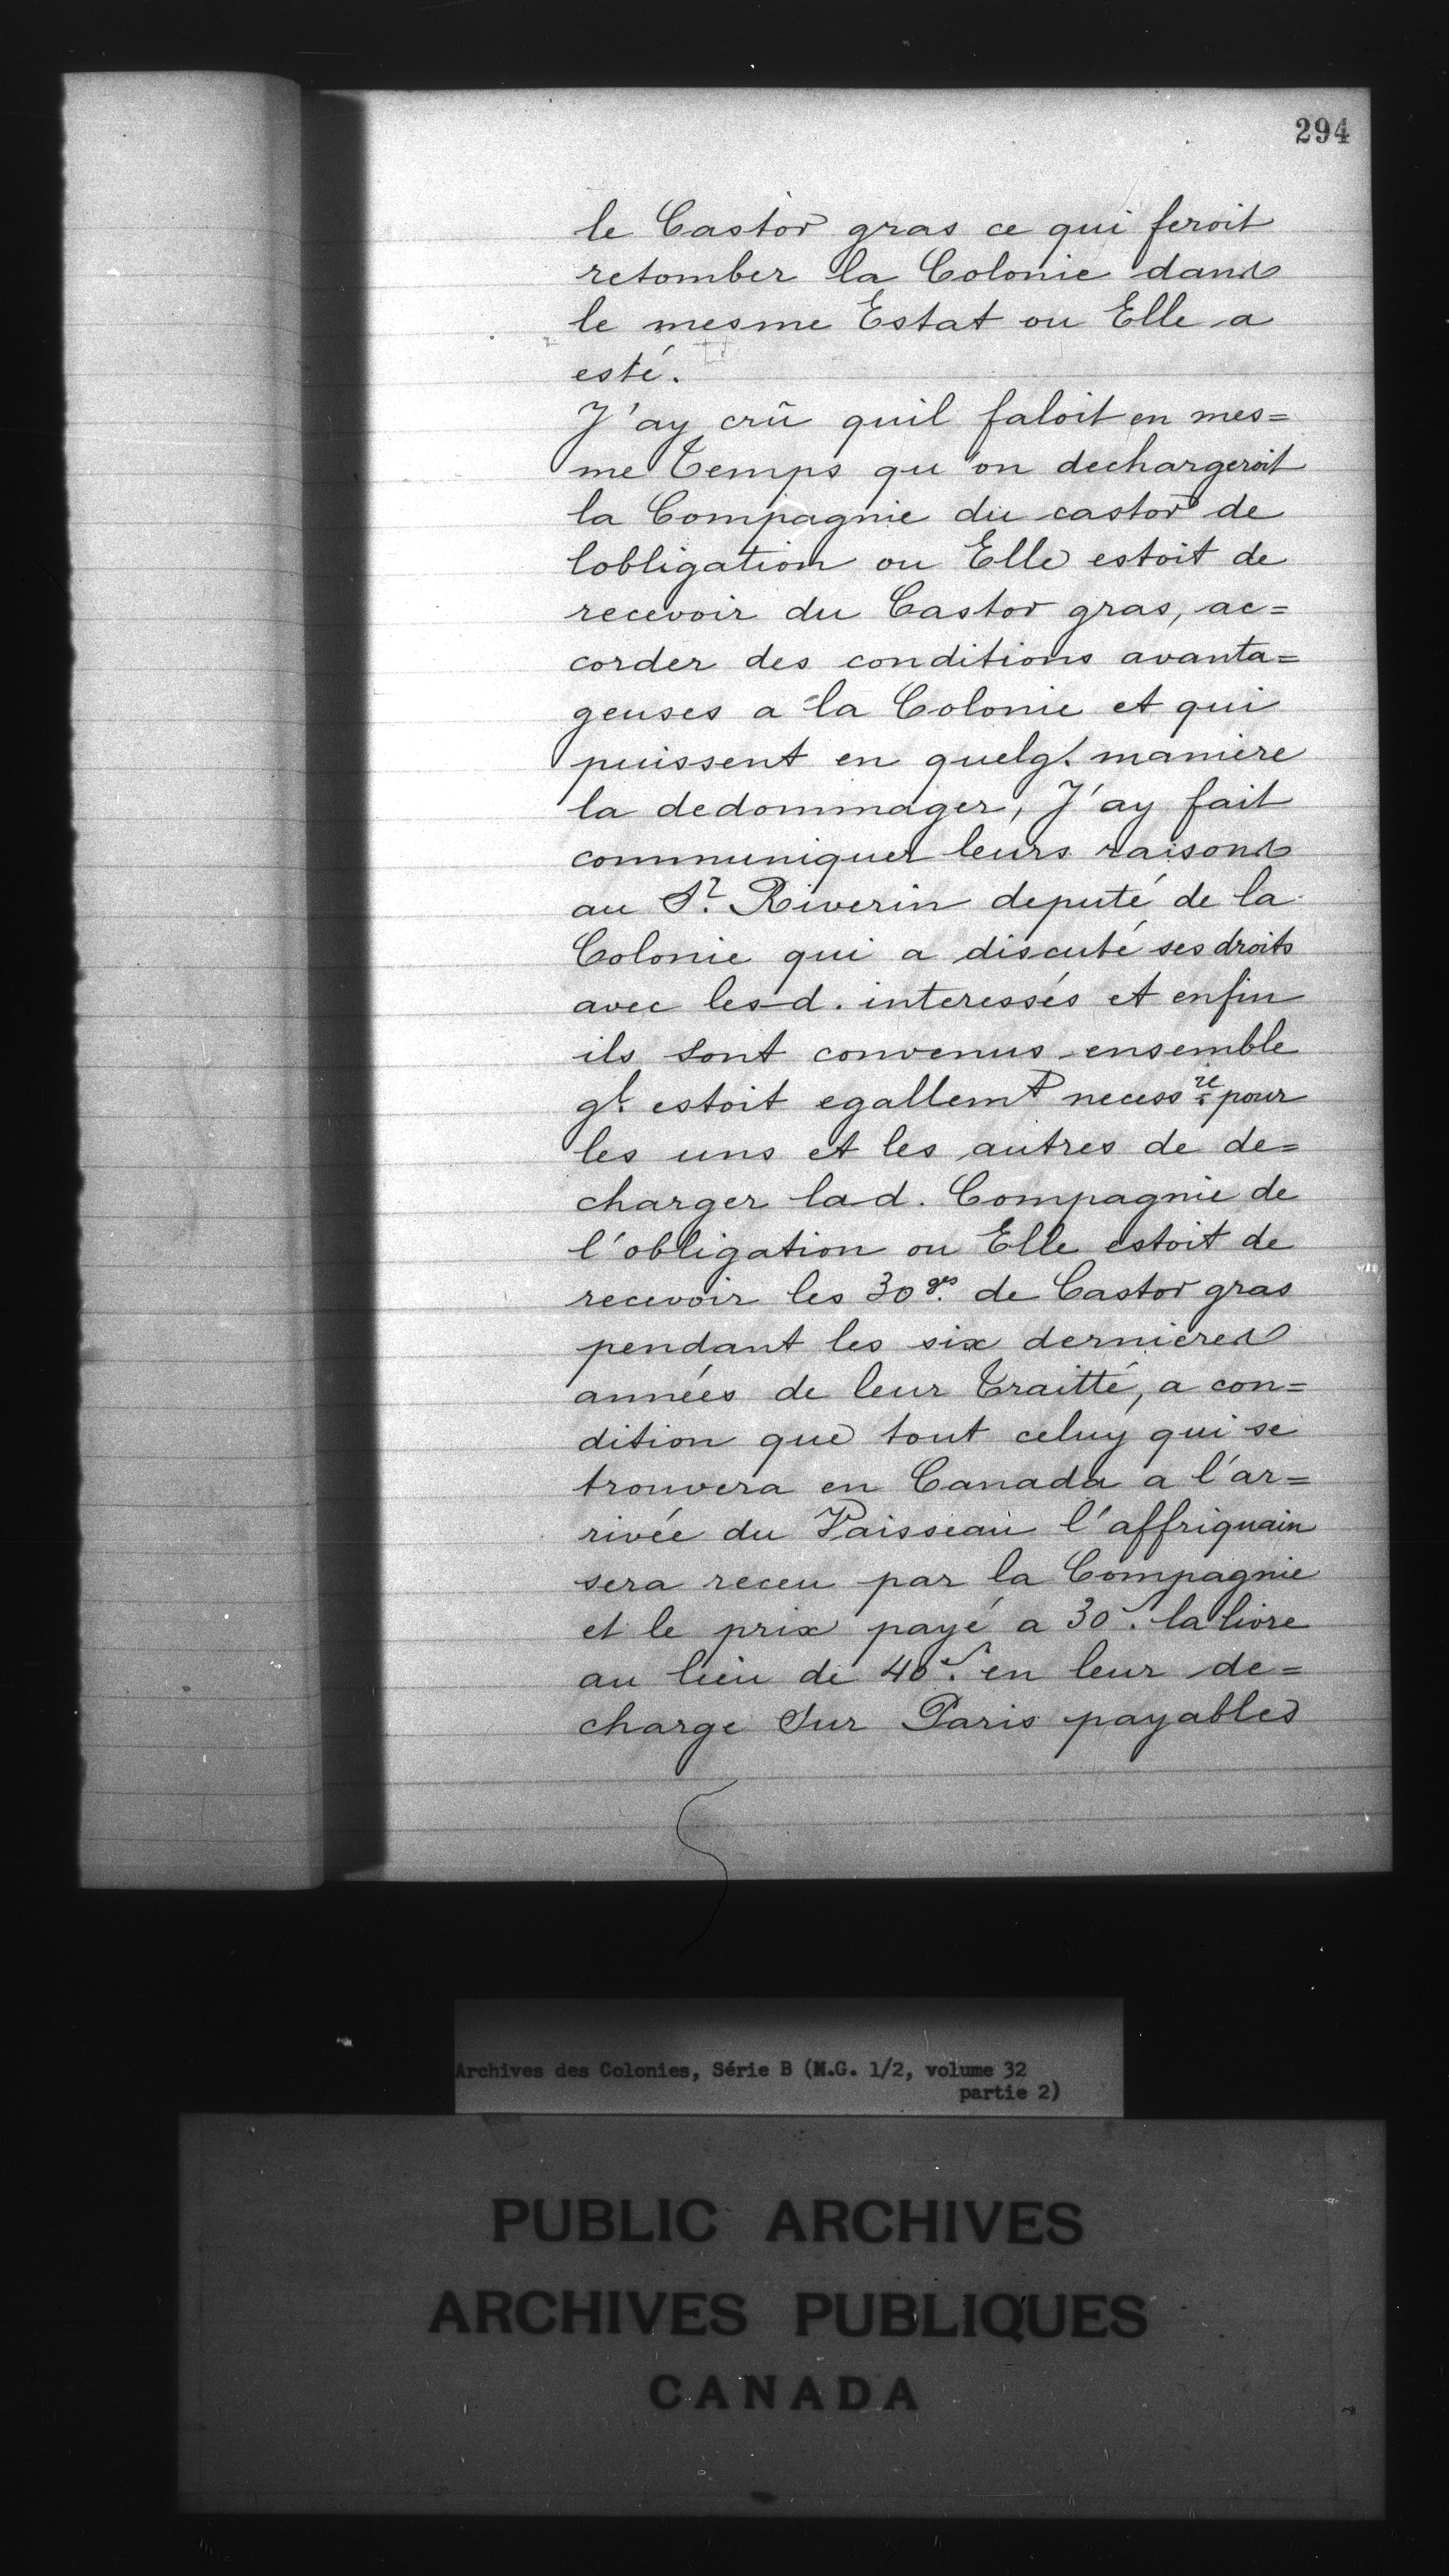 294
le Castor gras ce qui feroit
retomber la Colonie dans
le mesme Estat ou Elle a
esté.
J'ay crû quil faloit en mes=
me temps qu'on dechargeroit
la Compagnie du castor de
lobligation ou Elle estoit de
recevoir du Castor gras, ac=
corder des conditions avanta=
geuses a la Colonie et qui
puissent en quelq. maniere
la dedommager, J'ay fait
communiquer leurs raisons
au Sr. Riverin deputé de la
Colonie qui a discuté ses droits
avec lesd. interessés et enfin
ils sont convenus ensemble
ql. estoit egallemt necessre pour
les uns et les autres de de=
charger lad. Compagnie de
l'obligation ou Elle estoit de
recevoir les 30 qes. de Castor gras
pendant les six dernieres
années de leur Traitté, a con=
dition que tout celuy qui se
trouvera en Canada a l'ar=
rivée du Vaisseau l'affriquain
sera receu par la Compagnie
et le prix payé a 30s. la livre
au lieu de 40s. en leur de=
charge Sur Paris payables
Archives des Colonies, Série B (M.G. 1/2, volume 32
partie 2)
PUBLIC ARCHIVES
ARCHIVES PUBLIQUES
CANADA